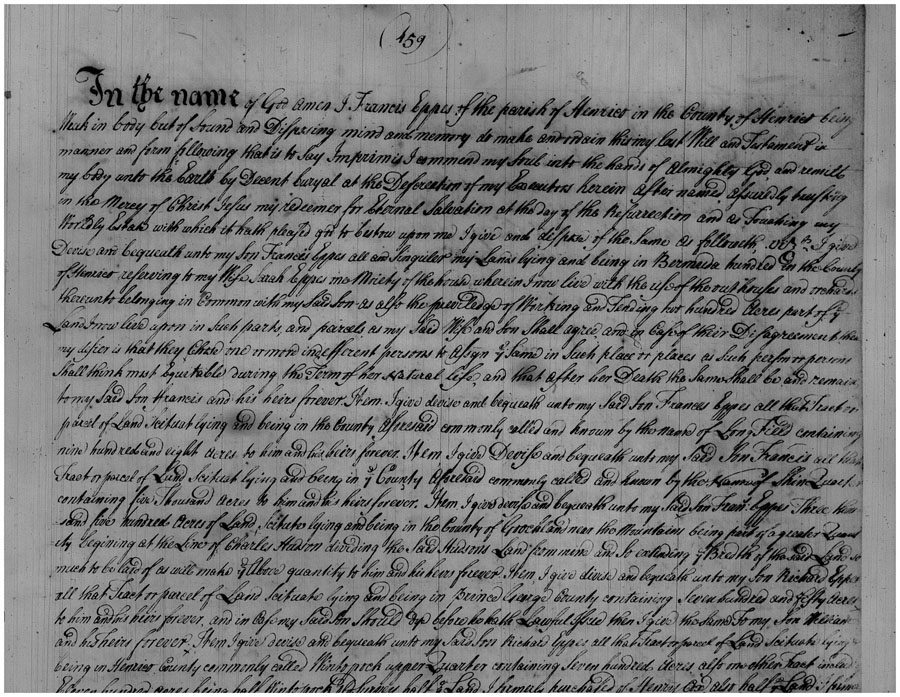 (459)
In the name of God Amen I Francis Eppes of the parish of Henrico in the County of Henrico being
Weak in body but of Sound and Disposing mind and memory do make and ordain this my last Will and Testament in
manner and form following that is to Say Imprimis I commend my Soul into the hands of Almighty God and remitt
my body unto the Earth by Decent buryal at the Descreation of my Executors herein after named assuredly trusting
in the Mercy of Christ Jesus my redeemer for Eternal Salvation at the day of the Resurrection and as Touching my
Worldly Estate with which it hath pleased God to bestow upon me I give and dispose of the Same as followeth Vizt. I give
Devise and bequeath unto my Son Francis Eppes all and Singular my Lands lying and being in Bermuda hundred in the County
of Henrico reserving to my Wife Sarah Eppes one Moiety of the house wherein I now live with the use of the out houses and orchards
thereunto belonging in Common with my Said Son as also the priviledge of Working and Tending two hundred Acres part of ye
Land I now live upon in Such parts and parcels as my Said Wife and Son Shall agree and in Case of their Disagreement then
my desier is that they Chose one or more indefferent persons to Assign ye Same in Such place or places as Such person or persons
Shall think most Equitable during the Term of her Natural life and that after her Death the Same Shall be and remain
to my Said Son Francis and his heirs forever Item I give devise and bequeath unto my Said Son Francis Eppes all that Tract or
parcel of Land Scituat lying and being in the County Aforesaid commonly called and known by the Name of Long Field containing
nine hundred and eight Acres to him and his heirs forever Item I give Devise and bequeath unto my Said Son Francis all that
Tract or parcel of Land Scituat lying and being in ye County Aforesaid commonly called and known by the Name of Quarter
containing five Thousand acres to him and his heirs forever. Item I give devise and bequeath unto my Said Son Fran: Eppes Three thou
sand five hundred Acres of Land Scituate lying and being in the County of Goochland near the Mountains being part of a greater Quant
ity begining at the Line of Charles Hudson dividing the Said Hudsons Land from mine and So extending ye Breadth of the Said Land so
much to be laid of as will make ye Above quantity to him and his heirs forever. Item I give divise and bequeath unto my Son Richard Eppes
all that Tract or parcel of Land Scituate lying and being in Prince George County containing Seven hundred and fifty Acres
to him and his heirs forever, and in Case my Said Son Should dye before he hath Lawful Issue then I give the Same To my Son William
and his heirs forever. Item I give devise and bequeath unto my Said Son Richard Eppes all that Tract or parcel of Land Scituate lying
being in Henrico County commonly called upper Quarter containing Seven hundred Acres also one other Tract
Eleven hundred Acres being half ye Land I purchased of Henry and also half